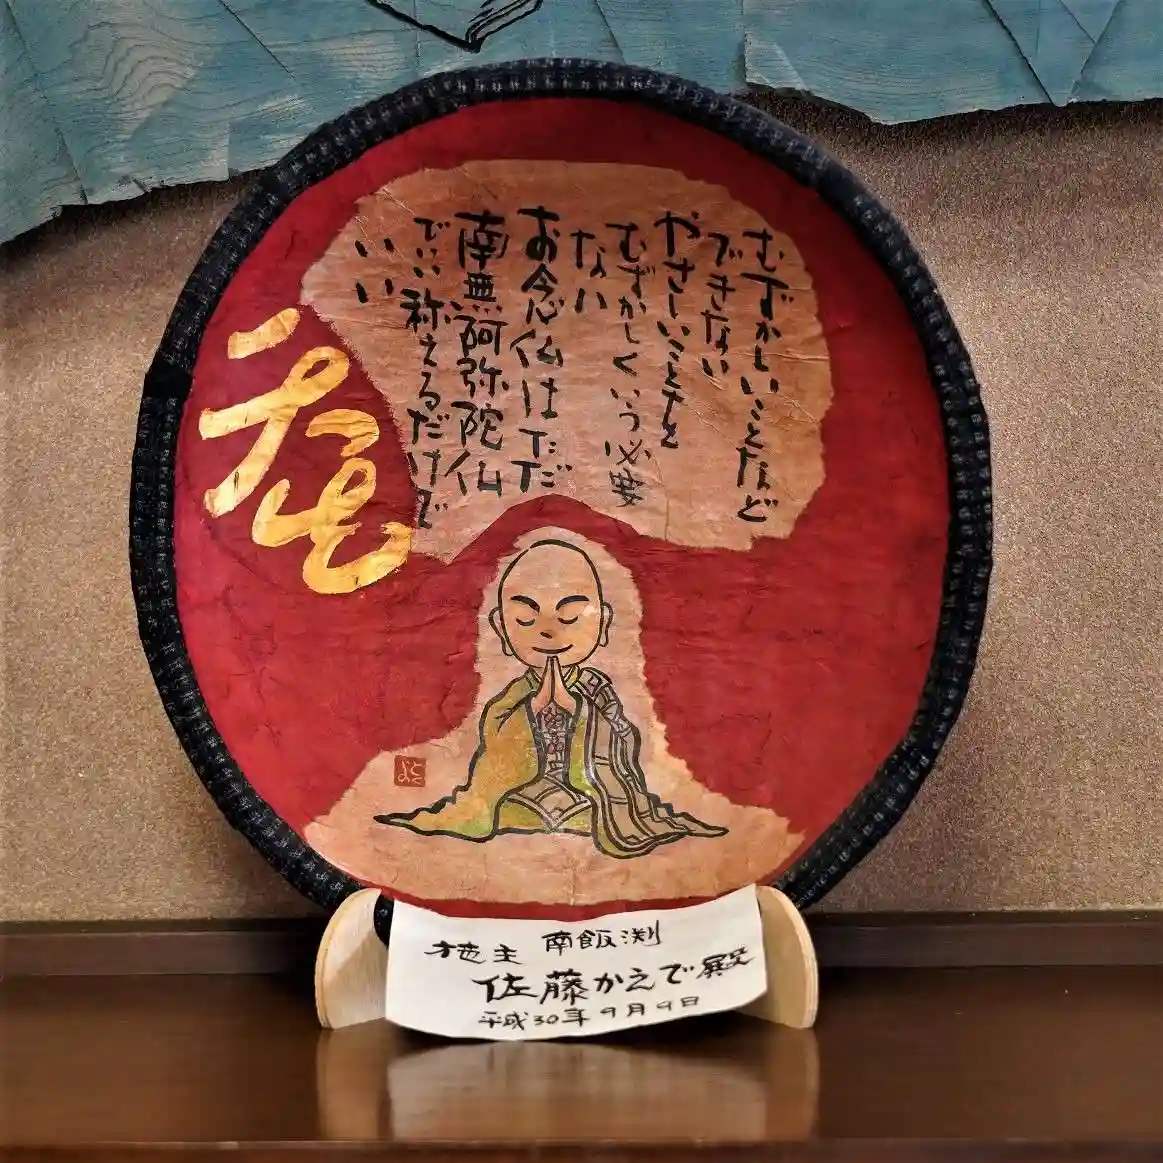 むずかしいことなど
できない
やさしいことを
むずかしくいう必要
ない
お念仏はただ
南無阿弥陀仏
でいい称えるだけで
いい
施主 南飯渕
佐藤かえで
平成30年9月9日